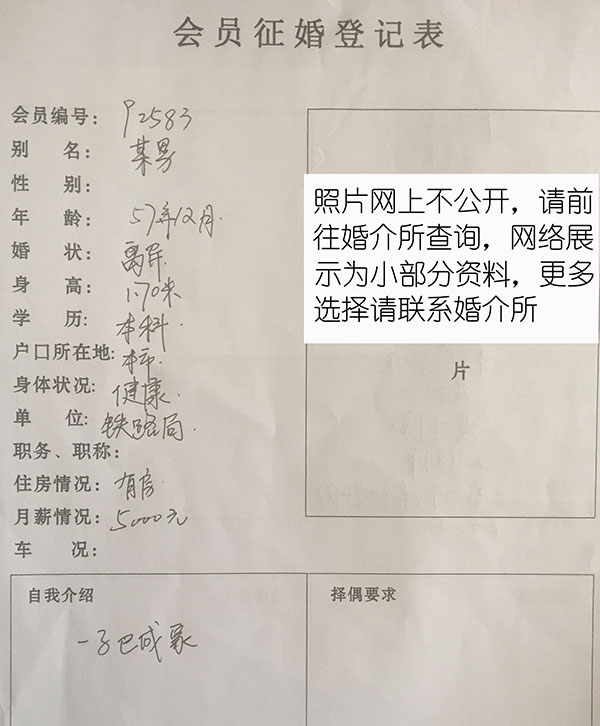 会员征婚登记表
会员编号: P2583
别 名: 某男
性 别:
年 龄: 57年12月.
婚 状: 离异.
身 高: 1.70米
学 历: 本科.
户口所在地: 本市.
身体状况: 健康.
单 位: 铁路局.
职务、职称:
住房情况: 有房.
月薪情况: 5000元
车 况:
照片网上不公开，请前
往婚介所查询，网络展
示为小部分资料，更多
选择请联系婚介所
片
自我介绍
一子已成家
择偶要求